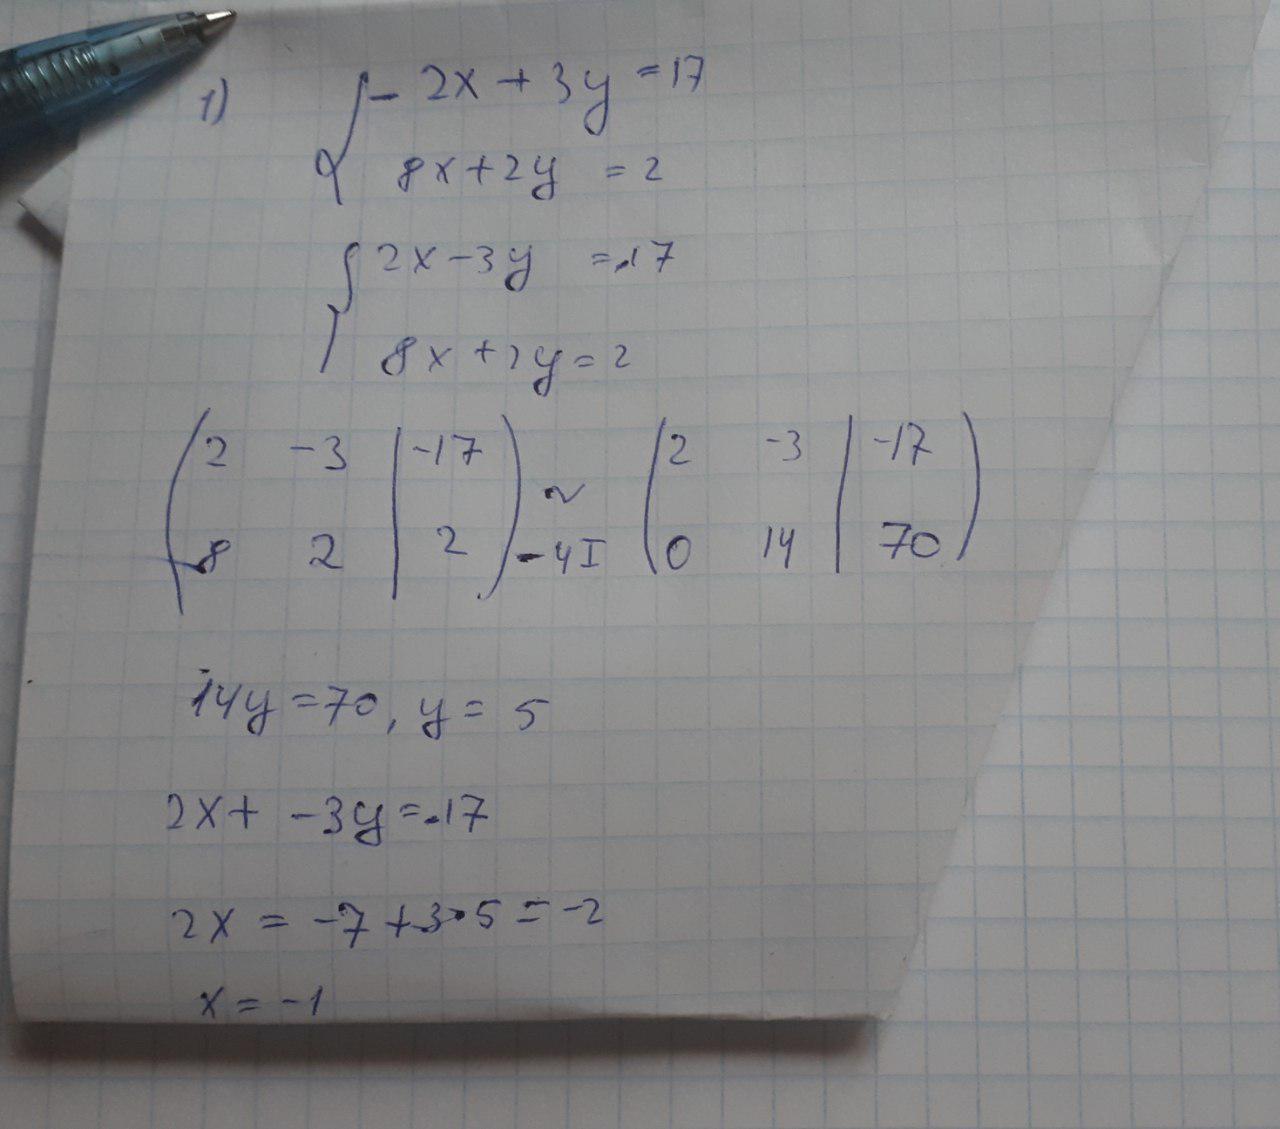 1) - 2x + 3y = 17
8x + 2y = 2
2x - 3y = -17
8x + 2y = 2
( 2 -3 | -17 ) ~ ( 2 -3 | -17 )
( 8 2 | 2 ) -4I ( 0 14 | 70 )
14y = 70, y = 5
2x + -3y = -17
2x = -7 + 3·5 = -2
x = -1